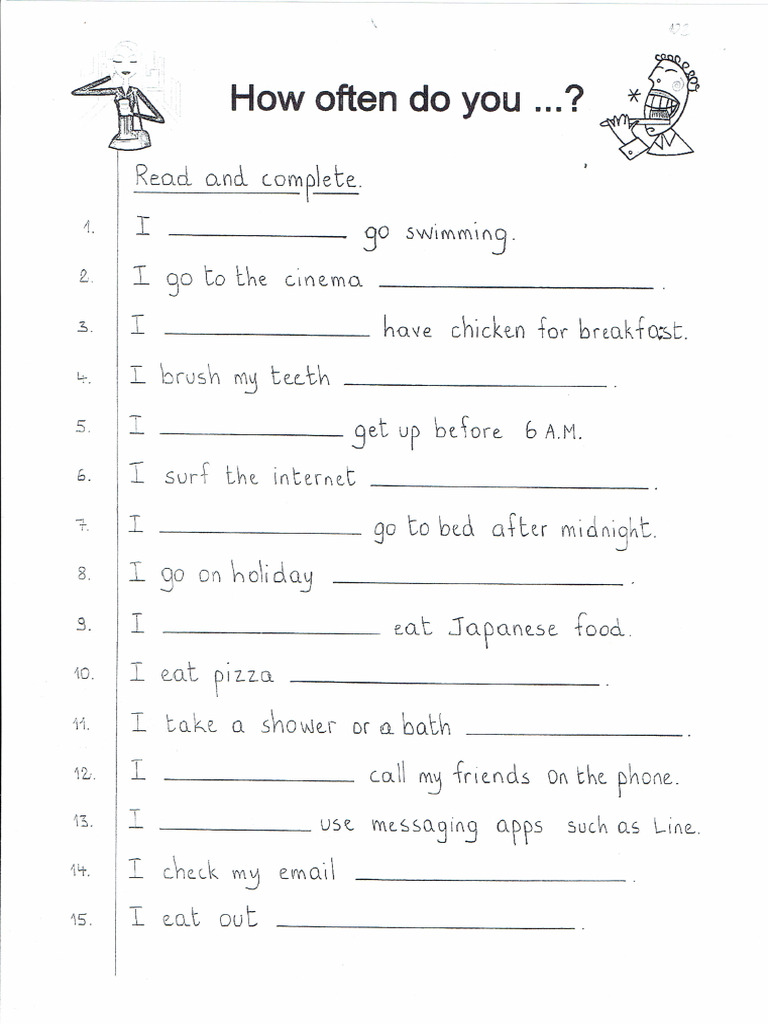 122
How often do you ...?
Read and complete.
1. I ____________ go swimming.
2. I go to the cinema ____________.
3. I ____________ have chicken for breakfast.
4. I brush my teeth ____________.
5. I ____________ get up before 6 A.M.
6. I surf the internet ____________.
7. I ____________ go to bed after midnight.
8. I go on holiday ____________.
9. I ____________ eat Japanese food.
10. I eat pizza ____________.
11. I take a shower or a bath ____________.
12. I ____________ call my friends on the phone.
13. I ____________ use messaging apps such as Line.
14. I check my email ____________.
15. I eat out ____________.